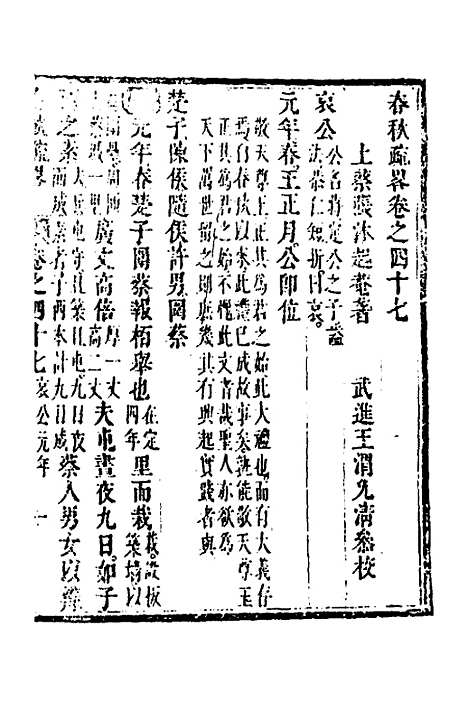 春秋疏畧卷之四十七
上蔡張沐起菴著 武進王渭允清叅校
哀公 公名蔣定公之子謚法恭仁短折曰哀
元年春王正月公卽位
敬天尊王正其爲君之始此大禮也而有大義存
焉自春秋以來此禮已成故事矣孰能敬天尊王
正其爲君之始不愧此文者哉聖人亦欲爲
天下萬世留之庶幾其有興起實踐者與
楚子陳侯隨侯許男圍蔡
元年春楚子圍蔡報栢舉也 在定四年 里而栽 栽設板築墻以
廣丈高倍 厚一丈高二丈 夫屯晝夜九日如子
之素 蔡人男女以辨
疏畧 卷之四十七 哀公元年 一